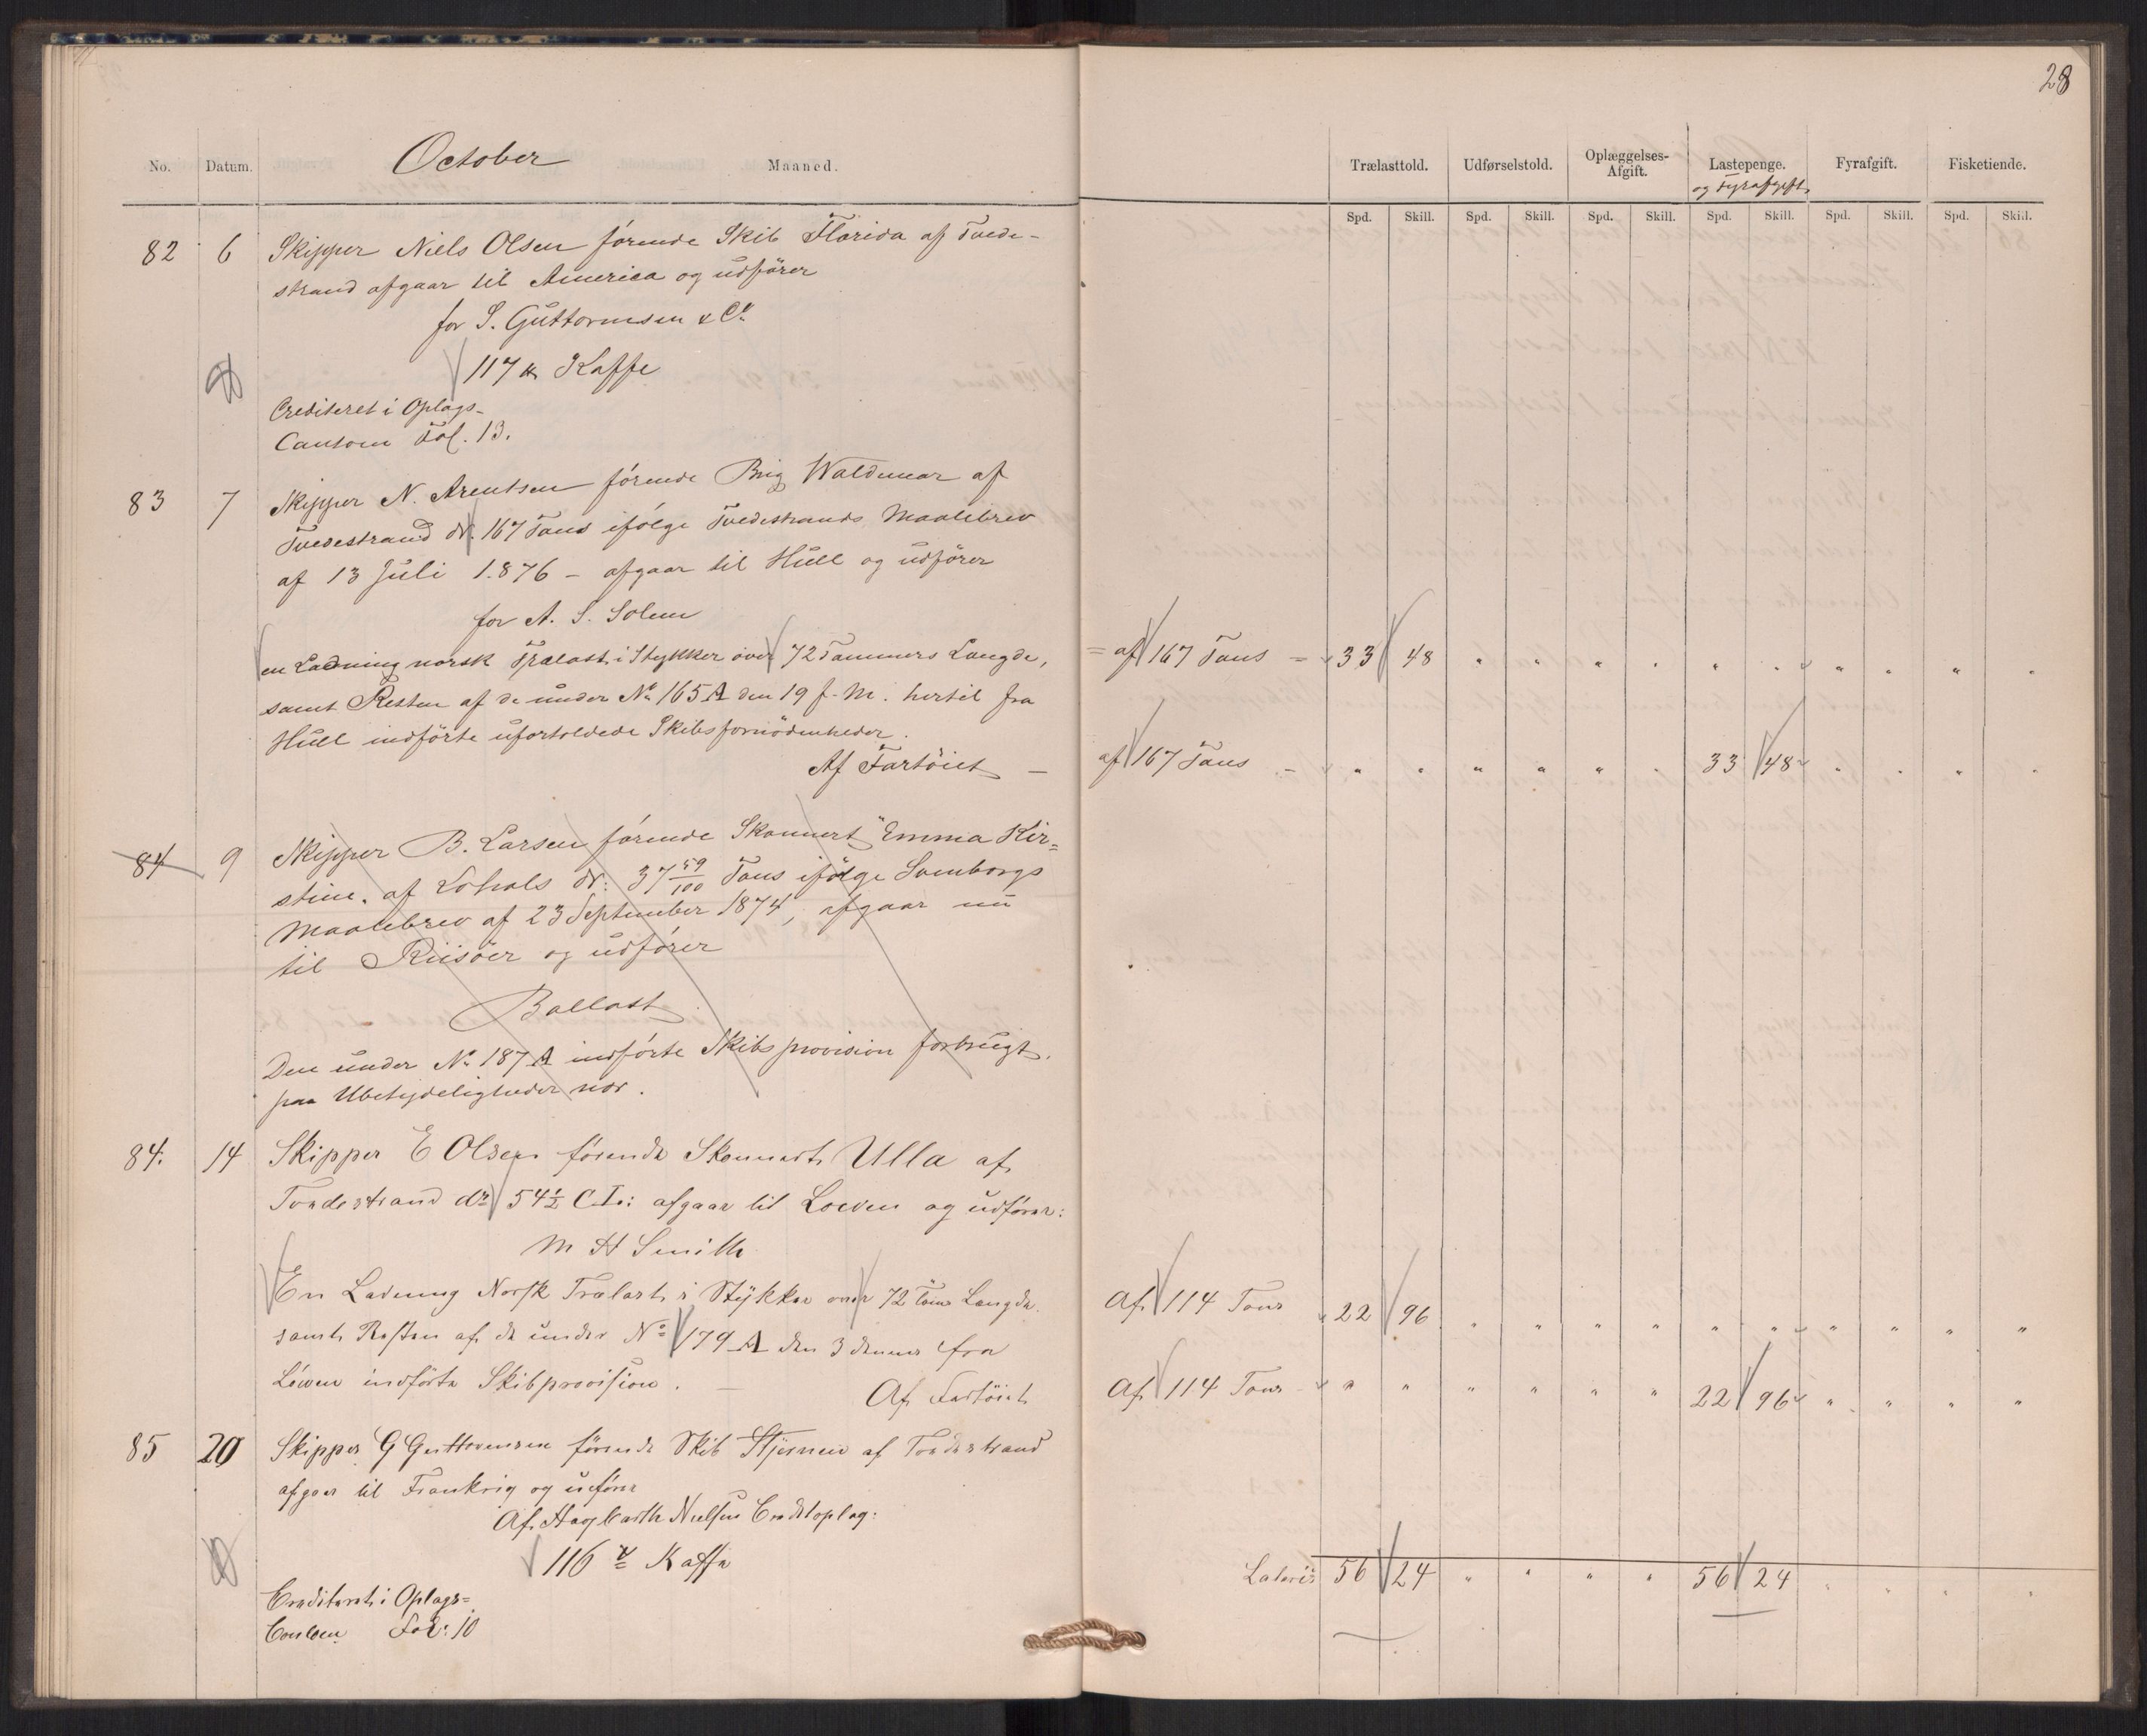 28
October
No. Datum. Maaned. Trælasttold. Udførselstold. Oplæggelses-Afgift. Lastepenge. Fyrafgift. Fisketiende.
og Fyrafgift
Spd. Skill. Spd. Skill. Spd. Skill. Spd. Skill. Spd. Skill. Spd. Skill.
82 6 Skipper Niels Olsen förende Skib Florida af Tvede-
strand afgaar til America og udförer
for S. Guttormsen & Co
117 ℔ Kaffe
Crediteret i Oplags-
Contoen Fol. 13.
83 7 Skipper N. Arentsen förende Brig Waldemar af
Tvedestrand dr. 167 Tons ifölge Tvedestrands Maalebrev
af 13 Juli 1.876 - afgaar til Hull og udförer
for A. S. Solem
en Ladning norsk Trælast i Stykker over 72 Tommers Længde, = af 167 Tons = 33 48 " " " " " " " " " "
samt Resten af de under No 165 A den 19 f. M. hertil fra
Hull indförte ufortoldede Skibsfornödenheder.
Af Fartöiet - af 167 Tons - " " " " " " 33 48 " " " "
84 9 Skipper B. Larsen förende Skonnert "Emma Kir=
stine" af Lohals dr: 37 59/100 Tons ifölge Svenborgs
Maalebrev af 23 September 1874, afgaar nu
til Riisöer og udförer
Ballast
Den under No 187 A indförte Skibsprovision forbrugt
paa Ubetydeligheder nær.
84. 14 Skipper E Olsen förende Skonnert Ulla af
Tvedestrand dr 54 1/2 C.L: afgaar til Loewen og udförer:
M H Smith
En Ladning Norsk Trælast i Stykker over 72 Tom Længde. Af 114 Tons 22 96 " " " " " " " " " "
samt Resten af de under No 179 A den 3 dennes fra
Löwen indförte Skibprovision. - Af Fartöiet Af 114 Tons - " " " " " " 22 96 " " " "
85 20 Skipper G Guttormsen förende Skib Stjernen af Tvedestrand
afgaar til Frankrig og udförer
Af Hagbarth Nielsens Creditoplag:
116 ℔ Kaffe
Lateris 56 24 " " " " 56 24 " " " "
Crediteret i Oplags=
Contoen Fol: 10